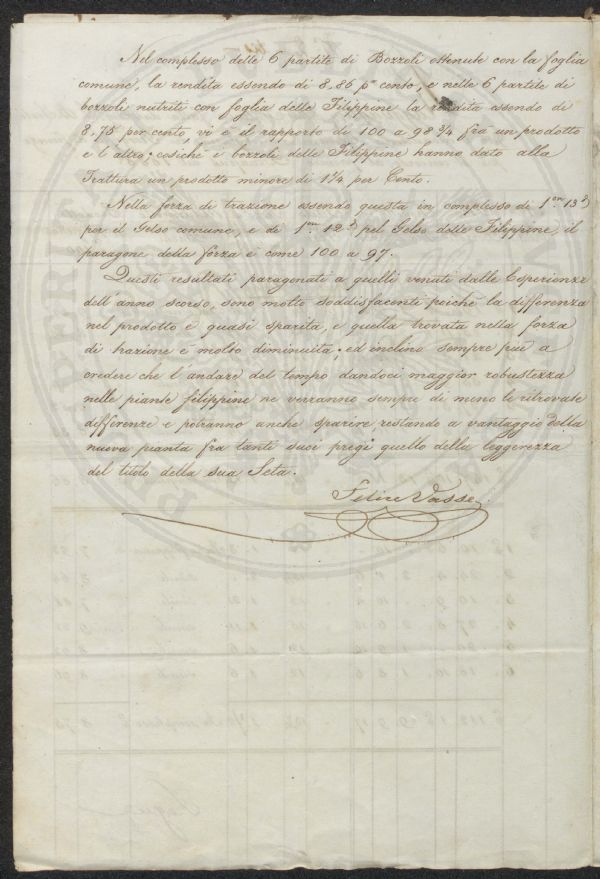 Nel complesso delle 6 partite di Bozzoli ottenute con la foglia
comune, la rendita essendo di 8,86 p% cento, e nelle 6 partite di
bozzoli nutriti con foglia delle Filippine la rendita essendo di
8,75 per cento, vi è il rapporto di 100 a 98 3/4 fra un prodotto
e l'altro; cosichè i bozzoli delle Filippine hanno dato alla
Trattura un prodotto minore di 1 1/4 per Cento.
Nella forza di trazione essendo questa in complesso di 1 13
per il Gelso comune, e di 1 12 pel Gelso delle Filippine, il
paragone della forza è come 100 a 97.
Questi resultati paragonati a quelli venuti dalle Esperienze
dell'anno scorso, sono molto soddisfacenti poichè la differenza
nel prodotto è quasi sparita, e quella trovata nella forza
di trazione è molto diminuita: ed inclino sempre più a
credere che l'andare del tempo dandoci maggior robustezza
nelle piante filippine ne verranno sempre di meno le ritrovate
differenze e potranno anche sparire restando a vantaggio della
nuova pianta fra tanti suoi pregi quello della leggerezza
del titolo della sua Seta.
Felice Vasse